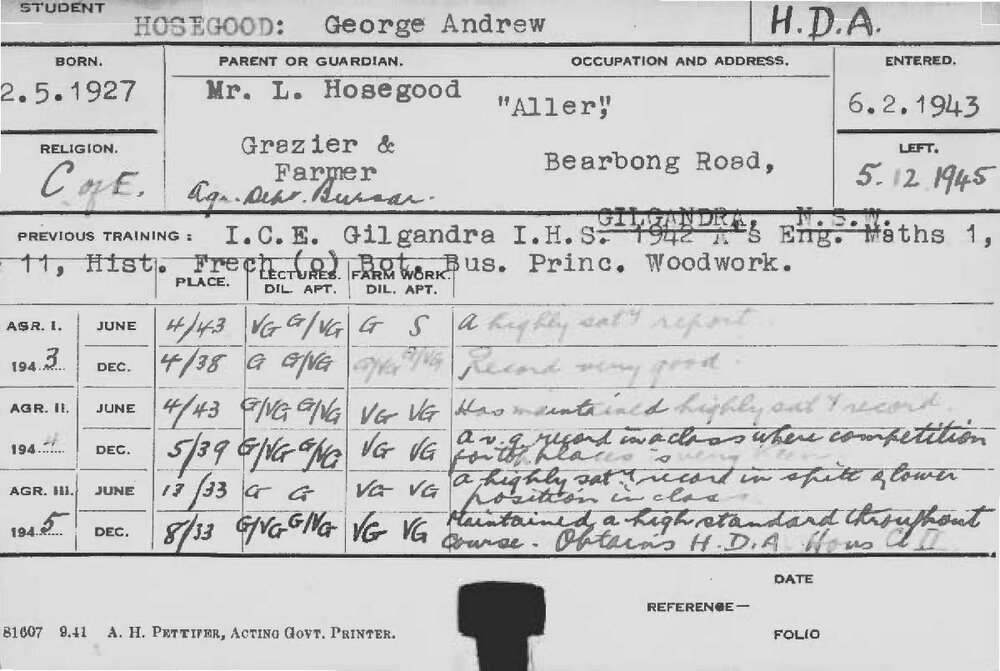 STUDENT
HOSEGOOD: George Andrew H.D.A.
BORN. PARENT OR GUARDIAN. OCCUPATION AND ADDRESS. ENTERED.
2.5.1927 Mr. L. Hosegood "Aller", 6.2.1943
RELIGION. Grazier & Farmer Bearbong Road, LEFT.
C of E. Agr. Dept. Bursar. 5.12.1945
GILGANDRA, N.S.W.
PREVIOUS TRAINING: I.C.E. Gilgandra I.H.S. 1942 A's Eng. Maths 1,
11, Hist. Frech (o) Bot. Bus. Princ. Woodwork.
PLACE. LECTURES. FARM WORK.
DIL. APT. DIL. APT.
AGR. I. JUNE 4/43 VG G/VG G S A highly saty report.
1943 DEC. 4/38 G G/VG G/VG G/VG Record very good
AGR. II. JUNE 4/43 G/VG G/VG VG VG Has maintained highly saty record.
1944 DEC. 5/39 G/VG G/VG VG VG A v.g. record in a class where competition
for top places is very keen
AGR. III. JUNE 13/33 G G VG VG A highly saty record in spite of lower
position in class
1945 DEC. 8/33 G/VG G/VG VG VG Maintained a high standard throughout
course. Obtains H.D.A. Hons Cl II
DATE
REFERENCE—
FOLIO
81607 9.41 A. H. PETTIFER, ACTING GOVT. PRINTER.